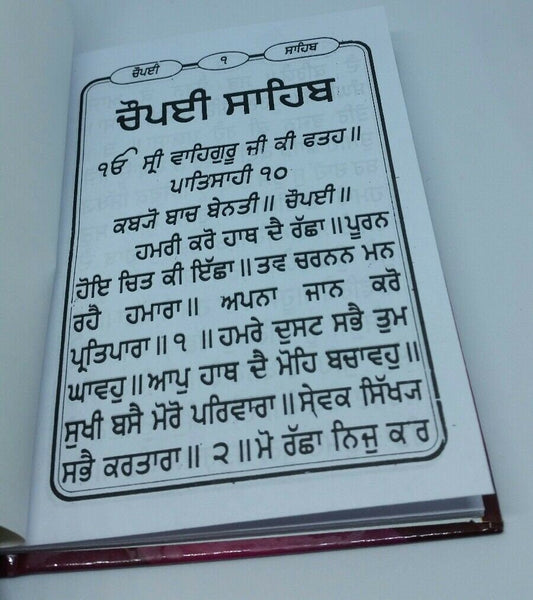 ਚੌਪਈ ੧ ਸਾਹਿਬ
ਚੌਪਈ ਸਾਹਿਬ
ੴ ਸ੍ਰੀ ਵਾਹਿਗੁਰੂ ਜੀ ਕੀ ਫਤਹ॥
ਪਾਤਿਸਾਹੀ ੧੦
ਕਬ੍ਯੋ ਬਾਚ ਬੇਨਤੀ॥ ਚੌਪਈ॥
ਹਮਰੀ ਕਰੋ ਹਾਥ ਦੈ ਰੱਛਾ॥ ਪੂਰਨ
ਹੋਇ ਚਿਤ ਕੀ ਇੱਛਾ॥ ਤਵ ਚਰਨਨ ਮਨ
ਰਹੈ ਹਮਾਰਾ॥ ਅਪਨਾ ਜਾਨ ਕਰੋ
ਪ੍ਰਤਿਪਾਰਾ॥ ੧ ॥ ਹਮਰੇ ਦੁਸਟ ਸਭੈ ਤੁਮ
ਘਾਵਹੁ॥ ਆਪੁ ਹਾਥ ਦੈ ਮੋਹਿ ਬਚਾਵਹੁ॥
ਸੁਖੀ ਬਸੈ ਮੋਰੋ ਪਰਿਵਾਰਾ॥ ਸੇਵਕ ਸਿੱਖ੍ਯ
ਸਭੈ ਕਰਤਾਰਾ॥ ੨॥ ਮੋ ਰੱਛਾ ਨਿਜੁ ਕਰ